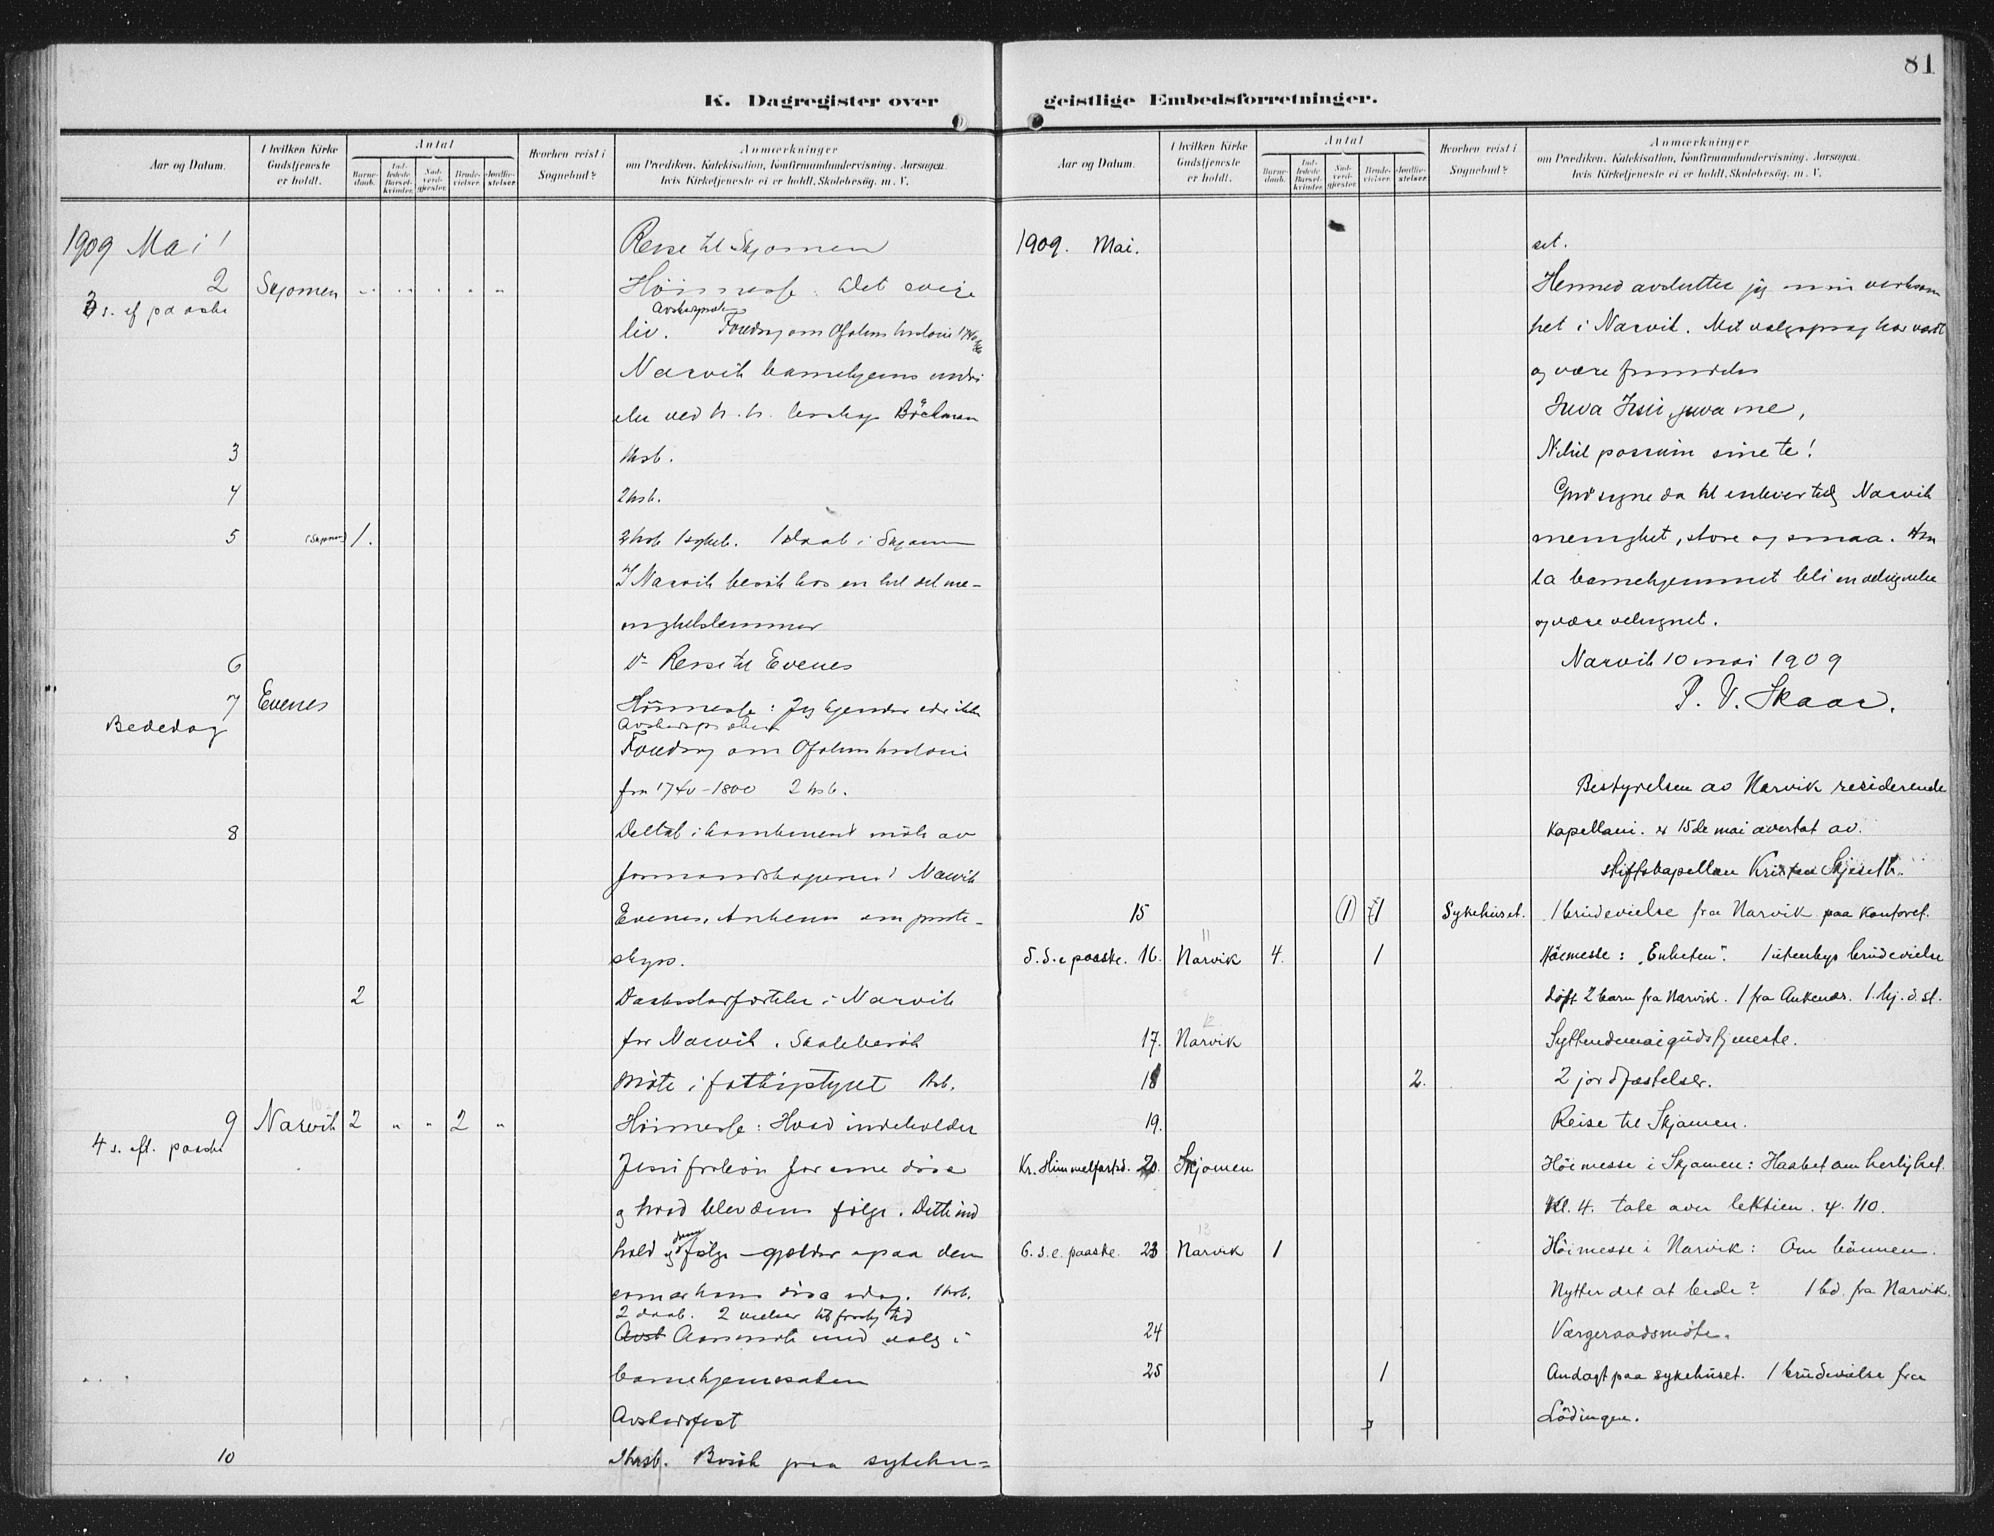 81
K. Dagregister over geistlige Embedsforretninger.
Aar og Datum.
I hvilken Kirke Gudstjeneste er holdt.
Antal
Barne-daab.
Ind-ledede Barsel-kvinder.
Nad-verd-gjester.
Brude-vielser.
Jordfæ-stelser.
Hvorhen reist i Sognebud?
Anmærkninger
om Prædiken, Katekisation, Konfirmandundervisning, Aarsagen,
hvis Kirketjeneste ei er holdt, Skolebesøg, m. V.
1909 Mai 1 Reise til Skjomen
2 Skjomen Höimesse: Det evige
3 s. ef paaske
liv. Foredrag om Ofotens historie
Narvik barnehjems
ved Böckman
3 1 ksb.
4 2 ksb.
5 (Skjomen) 1. 2 ksb 1 sykeb. 1 daab i Skjomen
I Narvik besök hos en hel del me-
nighetslemmer
6 Reise til Evenes
7 Evenes Höimesse: Jeg kjender eder ikke
Bededag
Foredrag om Ofotens historie
fra 1740-1800 2 ksb.
8 Deltat i kombineret möte av
formandskaperne i Narvik
Evenes, Ankenes om preste-
skyss.
2 Daabs i Narvik
for Narvik. Skolebesök
Möte i fattigstyret 1 ksb.
9 Narvik 2 " " 2 " Höimesse: Hvad indeholder
4 s. eft. paaske
Jesu for sine
og hvad blev dens følge. Dette ind
hold og dens følge gjælder paa den
idag. 1 ksb.
2 daab. 2 vielser
Aarsmöte med valg i
barnehjemssaken
Avskedsfest
10 1 ksb. Besök paa sykehu-
Aar og Datum.
I hvilken Kirke Gudstjeneste er holdt.
Antal
Barne-daab.
Ind-ledede Barsel-kvinder.
Nad-verd-gjester.
Brude-vielser.
Jordfæ-stelser.
Hvorhen reist i Sognebud?
Anmærkninger
om Prædiken, Katekisation, Konfirmandundervisning, Aarsagen,
hvis Kirketjeneste ei er holdt, Skolebesøg, m. V.
1909. Mai. set.
Hermed avslutter jeg min verksom
het i Narvik. Mit valgsprog har været
og være fremdeles
Juva Jesu, juva me,
Nihil possum sine te!
Gud signe da til enhver tid Narvik
menighet, store og smaa.
la barnehjemmet bli en velsignelse
og være velsignet.
Narvik 10 mai 1909
P. V. Skaar.
Bestyrelsen av Narvik residerende
kapellani er 15de mai overtat av
stiftskapellan Kristen Skjeseth.
15 (1) 1 Sykehuset. 1 brudevielse fra Narvik paa kontoret.
11
5. s. e paaske. 16. Narvik 4. 1 Höimesse: "Enheten". 1 utenbys brudevielse
döpt 2 barn fra Narvik. 1 fra Ankenæs. 1. hj. d. st.
12
17. Narvik Syttendemaigudstjeneste.
18 2. 2 jordfæstelser.
19. Reise til Skjomen.
Kr. Himmelfartsd. 20. Skjomen Höimesse i Skjomen: Haabet om herlighet.
Kl. 4. tale over lektien. 4. 110.
13
6. s. e. paaske. 23 Narvik 1 Höimesse i Narvik: Om bönnen.
Nytter det at bede? 1 bd. fra Narvik.
24 Værgeraadsmöte.
25 1 Andagt paa sykehuset. 1 brudevielse fra
Lödingen.